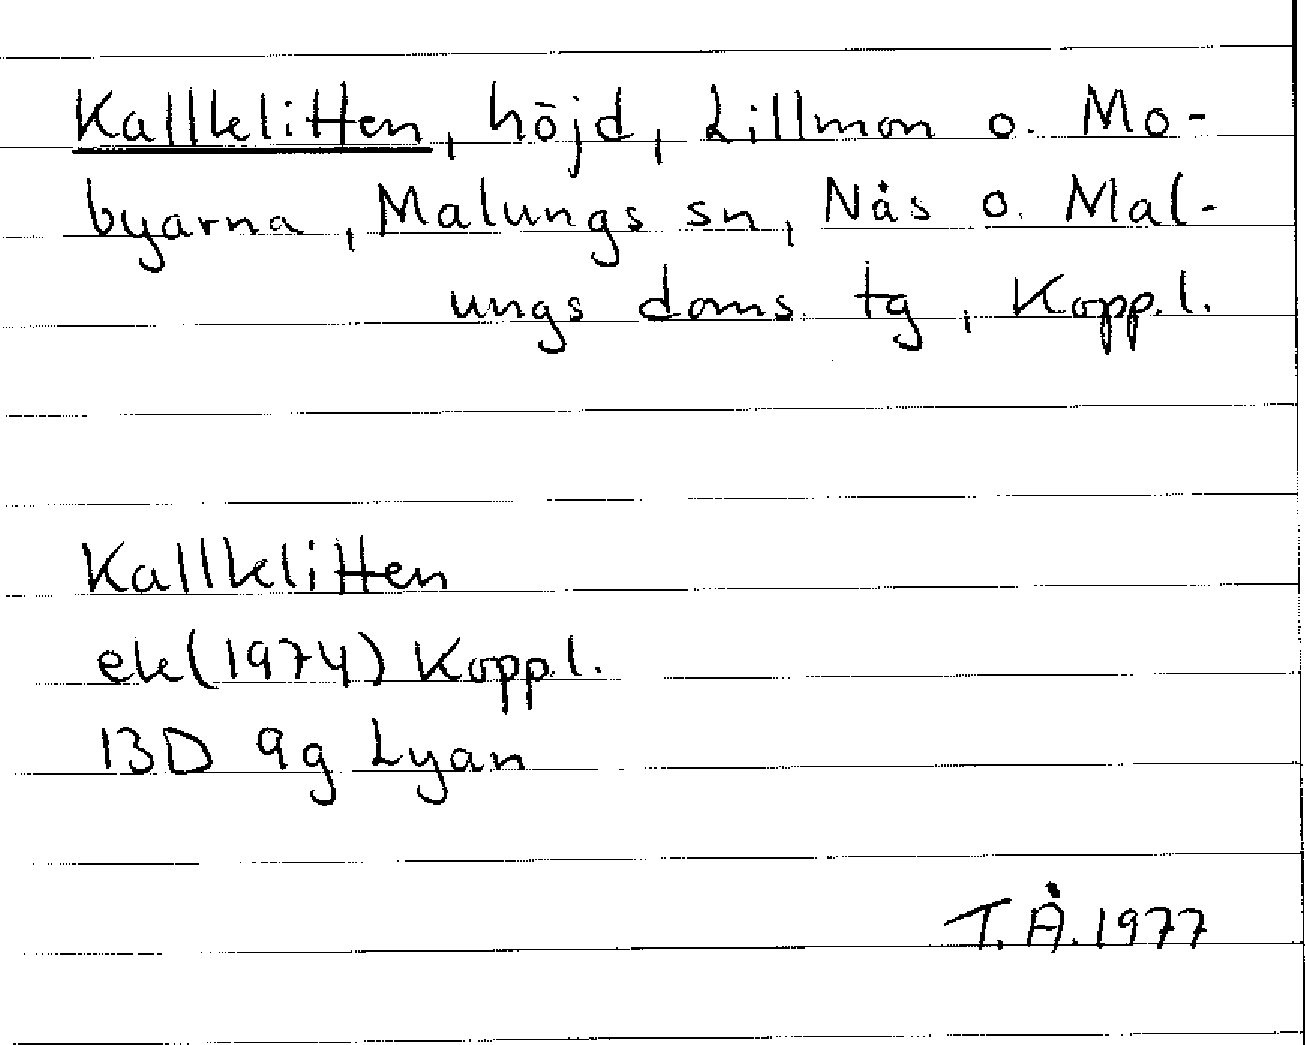 Kallklitten, höjd, Lillmon o. Mo-
byarna, Malungs sn, Nås o. Mal-
ungs doms. tg, Kopp.l.
Kallklitten
ek(1974) Kopp.l.
13D 9g Lyan
T.Å.1977